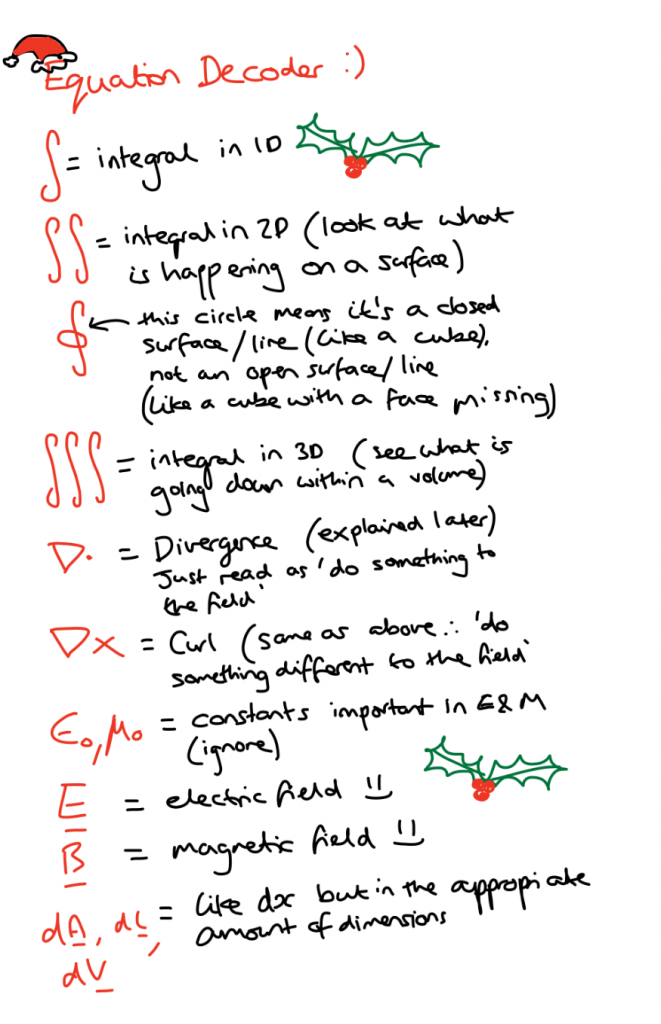 Equation Decoder :)
∫ = integral in 1D
∬ = integral in 2D (look at what
is happening on a surface)
∮ ← this circle means it's a closed
surface/line (like a cube),
not an open surface/line
(like a cube with a face missing)
∭ = integral in 3D (see what is
going down within a volume)
∇· = Divergence (explained later)
Just read as 'do something to
the field'
∇× = Curl (same as above ∴ 'do
something different to the field'
ϵ₀, μ₀ = constants important in E&M
(ignore)
E = electric field
B = magnetic field
dA, dL, = like dx but in the appropiate
amount of dimensions
dV